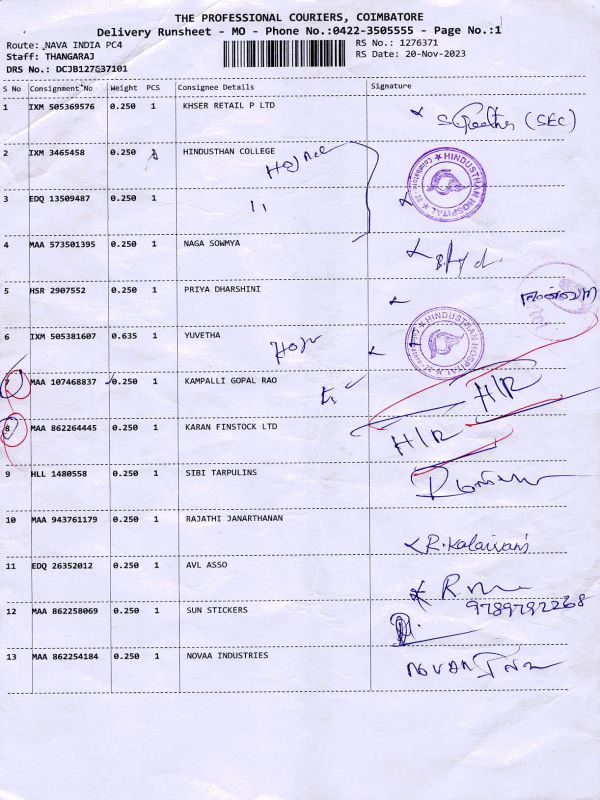 THE PROFESSIONAL COURIERS, COIMBATORE
Delivery Runsheet - MO - Phone No.:0422-3505555 - Page No.:1
Route: NAVA INDIA PC4 RS No.: 1276371
Staff: THANGARAJ RS Date: 20-Nov-2023
DRS No.: DCJB127637101
S No Consignment No Weight PCS Consignee Details Signature
1 IXM 505369576 0.250 1 KHSER RETAIL P LTD (SEC)
2 IXM 3465458 0.250 HINDUSTHAN COLLEGE
HINDUSTHAN HOSPITAL
3 EDQ 13509487 0.250 1 11
4 MAA 573501395 0.250 1 NAGA SOWMYA
5 HSR 2907552 0.250 1 PRIYA DHARSHINI
6 IXM 505381607 0.635 1 YUVETHA
HINDUSTHAN HOSPITAL
7 MAA 107468837 0.250 1 KAMPALLI GOPAL RAO H/R
8 MAA 862264445 0.250 1 KARAN FINSTOCK LTD H/R
9 HLL 1480558 0.250 1 SIBI TARPULINS
10 MAA 943761179 0.250 1 RAJATHI JANARTHANAN R.Kalaivani
11 EDQ 26352012 0.250 1 AVL ASSO
9789792268
12 MAA 862258069 0.250 1 SUN STICKERS
13 MAA 862254184 0.250 1 NOVAA INDUSTRIES